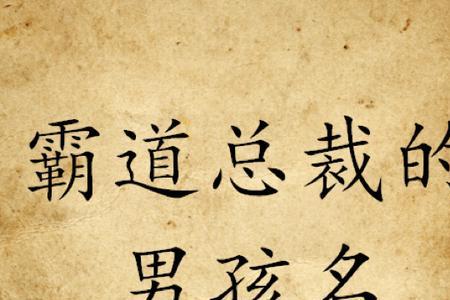 霸道总裁的
男孩名